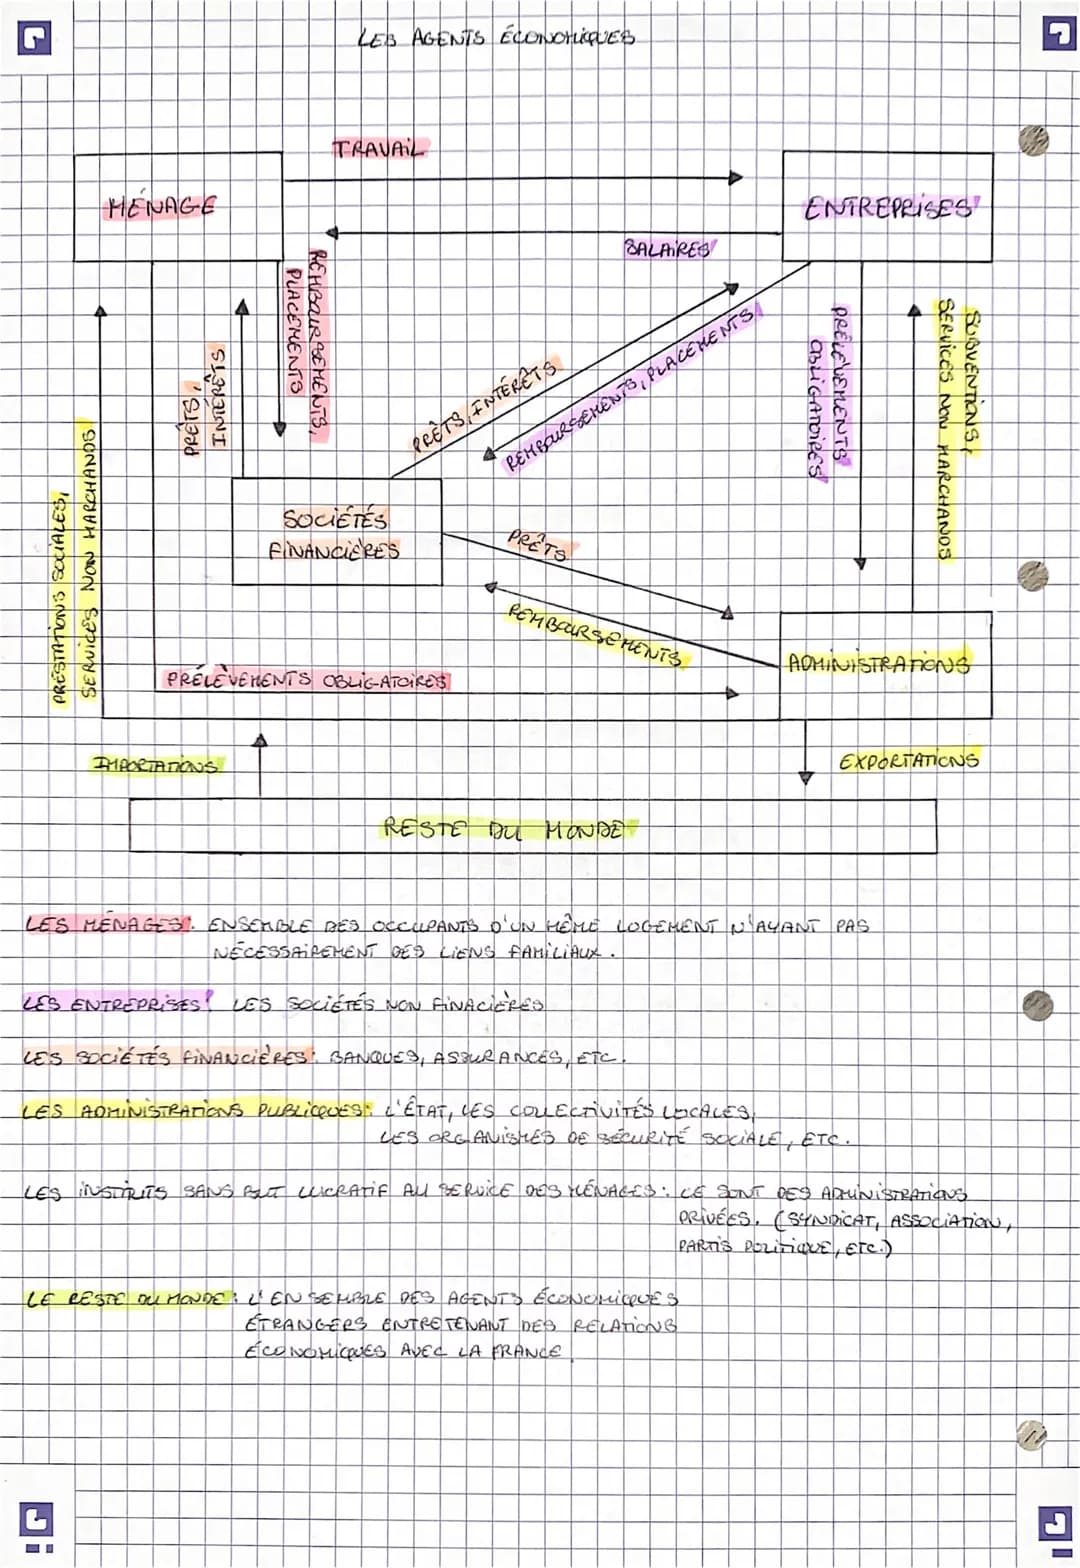 LES AGENTS ÉCONOMIQUES
TRAVAIL
MÉNAGE
ENTREPRISES
SALAIRES
REMBOURSEMENTS,
PLACEMENTS
PRÊTS,
INTÉRÊTS
PRÊTS, INTÉRÊTS
REMBOURSEMENTS, PLACEMENTS
PRÉLÈVEMENTS
OBLIGATOIRES
SUBVENTIONS,
SERVICES NON MARCHANDS
PRESTATIONS SOCIALES,
SERVICES NON MARCHANDS
SOCIÉTÉS
FINANCIÈRES
PRÊTS
REMBOURSEMENTS
ADMINISTRATIONS
PRÉLÈVEMENTS OBLIGATOIRES
IMPORTATIONS
EXPORTATIONS
RESTE DU MONDE
LES MÉNAGES: ENSEMBLE DES OCCUPANTS D'UN MÊME LOGEMENT N'AYANT PAS
NÉCESSAIREMENT DES LIENS FAMILIAUX.
LES ENTREPRISES: LES SOCIÉTÉS NON FINACIÈRES
LES SOCIÉTÉS FINANCIÈRES: BANQUES, ASSURANCES, ETC.
LES ADMINISTRATIONS PUBLIQUES: L'ÉTAT, LES COLLECTIVITÉS LOCALES,
LES ORGANISMES DE SÉCURITÉ SOCIALE, ETC.
LES INSTITUTS SANS BUT LUCRATIF AU SERVICE DES MÉNAGES: CE SONT DES ADMINISTRATIONS
PRIVÉES. (SYNDICAT, ASSOCIATION,
PARTIS POLITIQUE, ETC.)
LE RESTE DU MONDE: L'ENSEMBLE DES AGENTS ÉCONOMIQUES
ÉTRANGERS ENTRETENANT DES RELATIONS
ÉCONOMIQUES AVEC LA FRANCE